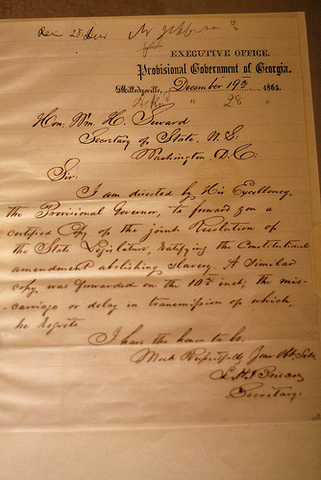 EXECUTIVE OFFICE.
Provisional Government of Georgia.
Milledgeville, December 19th 1865.
28 "
Hon. Wm. H. Seward
Secretary of State, U.S.
Washington D.C.
Sir:
I am directed by His Excellency,
the Provisional Governor, to forward you a
certified copy of the joint Resolution of
the State Legislature, ratifying the Constitutional
amendment abolishing slavery. A similar
copy, was forwarded on the 10th inst; the mis-
carriage or delay in transmission of which,
he regrets.
I have the honor to be
Most Respectfully Your Obt. Svt.
Secretary.